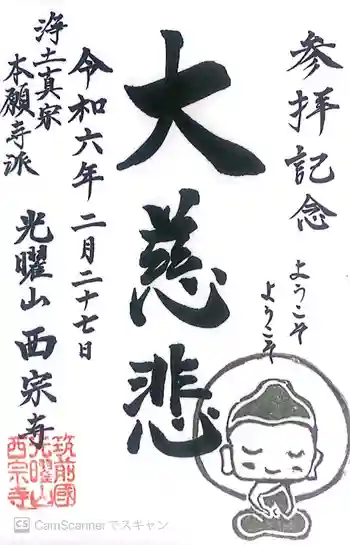 参拝記念
ようこそ
ようこそ
大慈悲
令和六年二月二十七日
浄土真宗
本願寺派
光曜山西宗寺
筑前國
光曜山
西宗寺
CS CamScannerでスキャン